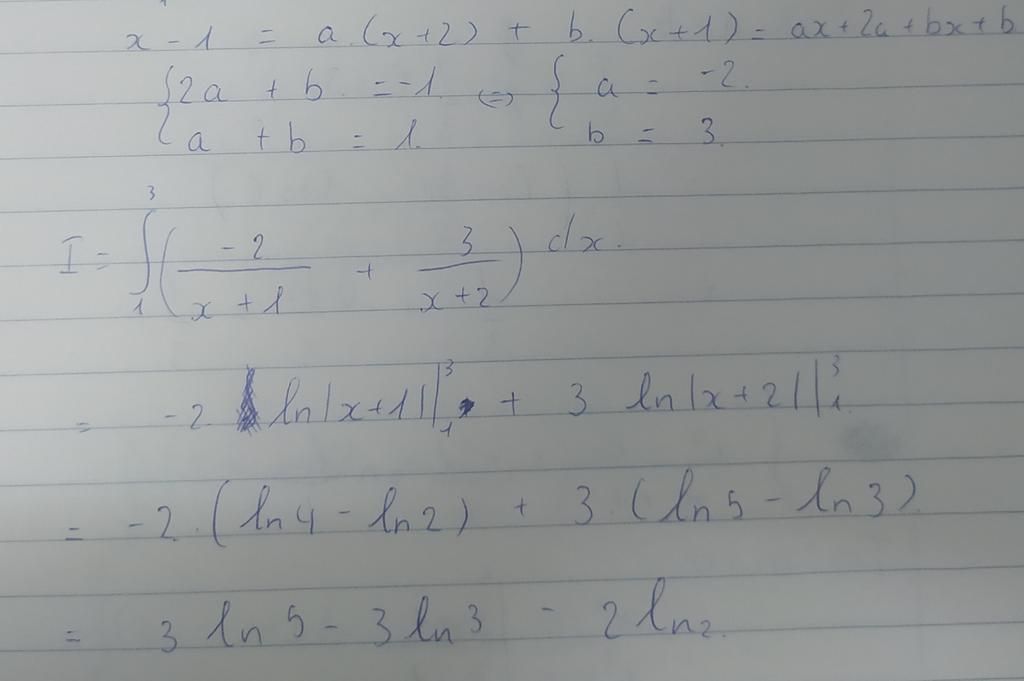 x - 1 = a.(x+2) + b.(x+1) = ax+2a+bx+b
{2a + b = -1 ⇔ { a = -2.
a + b = 1. b = 3.
I = ∫₁³ ( -2/(x+1) + 3/(x+2) ) dx.
= -2 ln|x+1||₁³ + 3 ln|x+2||₁³
= -2.(ln4 - ln2) + 3.(ln5 - ln3)
= 3 ln5 - 3 ln3 - 2 ln2.